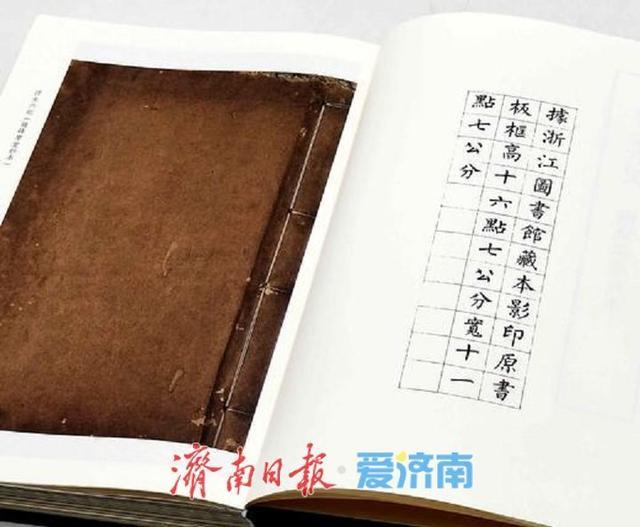 據浙江圖書館藏本影印原書
板框高十六點七公分寬十一
點七公分
濟南日報·爱济南